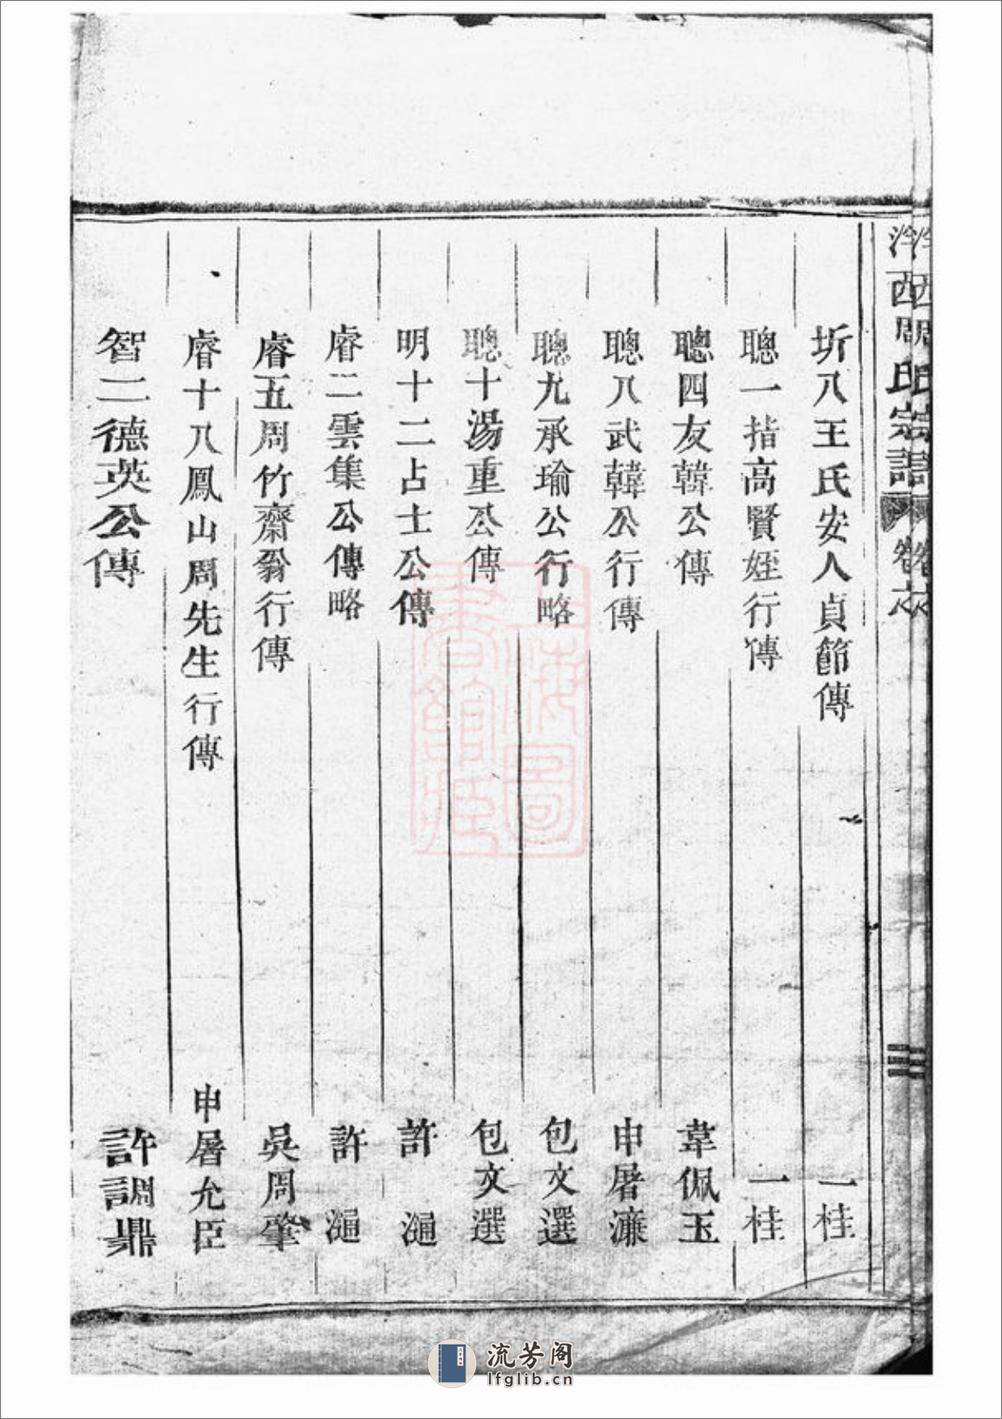 西周氏宗譜 卷之
三
圻八王氏安人貞節傳 一桂
聰一指高賢姪行傳 一桂
聰四友韓公傳 韋佩玉
聰八武韓公行傳 申屠濂
聰九承瑜公行略 包文選
聰十湯重公傳 包文選
明十二占士公傳 許瀊
睿二雲集公傳略 許瀊
睿五周竹齋翁行傳 吳周肇
睿十八鳳山周先生行傳 申屠允臣
智二德英公傳 許調鼎
上海圖書館藏
流芳阁
lfglib.cn